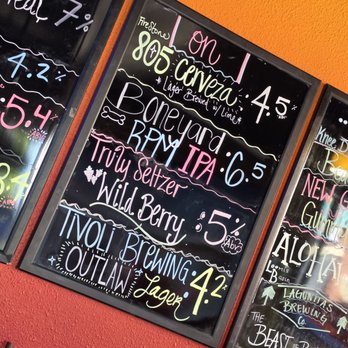 7%
4.2%
5.4%
8.4
1 on 1
FireStone
805 Cerveza
4.5%
Lager Brewed w/ Lime
Boneyard
RPM IPA: 6.5%
Truly Seltzer
Wild Berry
5%
ABV
TVOLI BREWING
OUTLAW Lager
4.2%
Knee D
Be
NEW G
Gumm
ALOHA
LAGUNITAS
BREWING
Co.
THE
BEAST